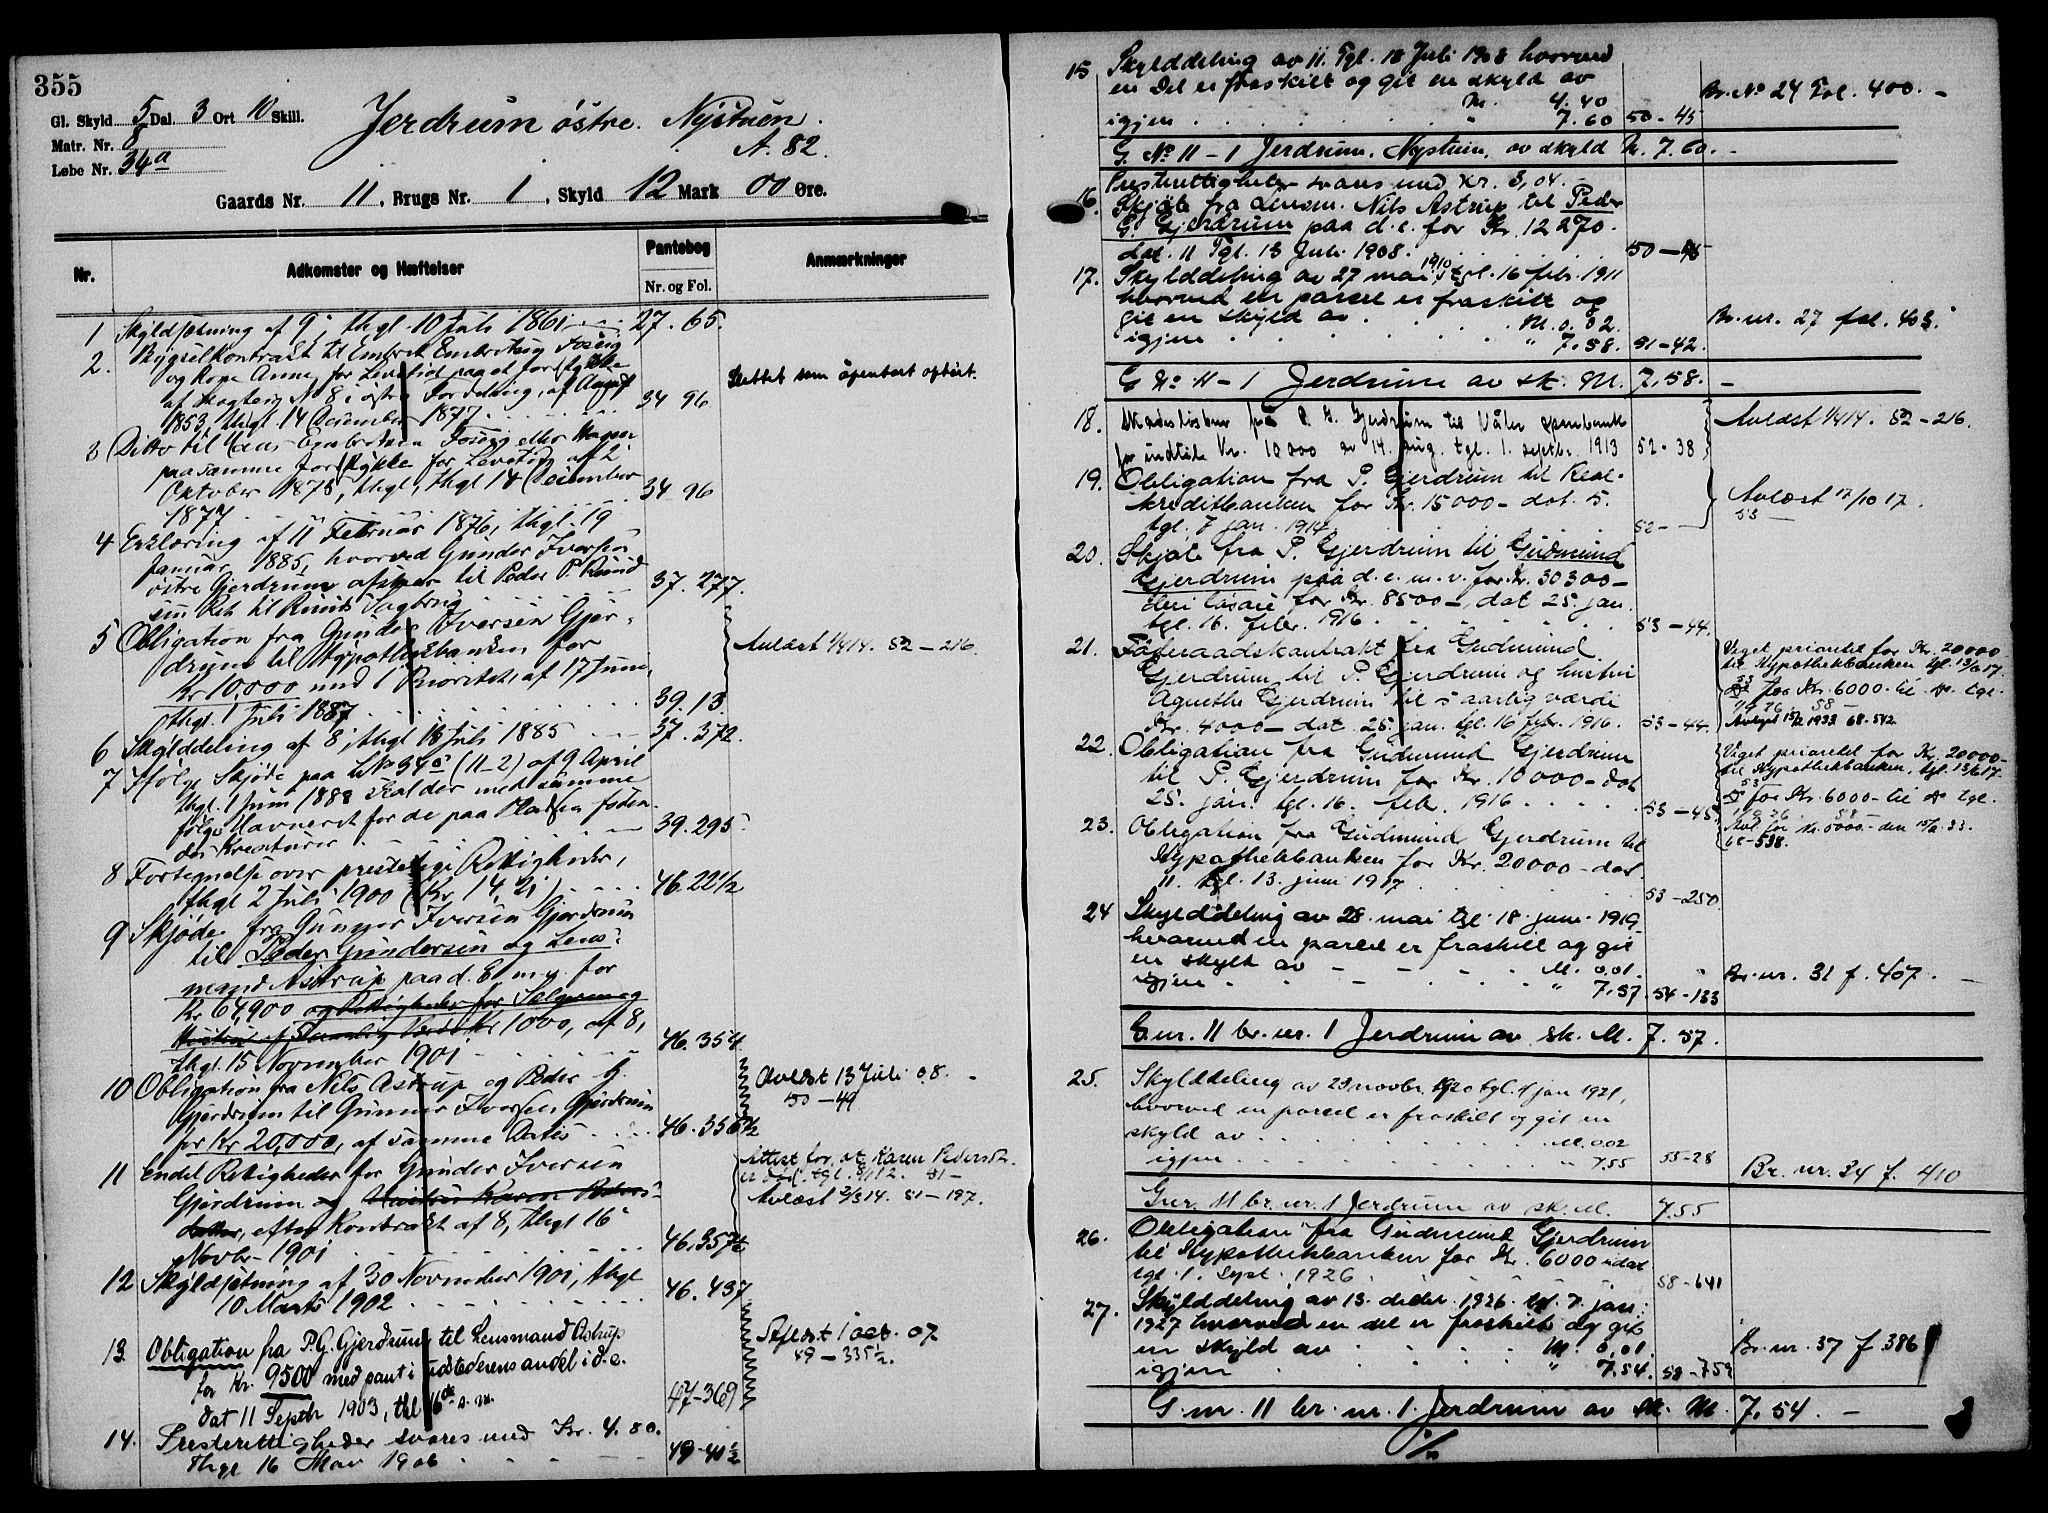 355
Gl. Skyld 5 Dal. 3 Ort 10 Skill.
Matr. Nr. 8
Løbe Nr. 34a
Jerdrum østre. Nystuen.
A. 82.
Gaards Nr. 11, Brugs Nr. 1, Skyld 12 Mark 00 Øre.
Nr.
Adkomster og Hæftelser
Pantebog
Nr. og Fol.
Anmærkninger
1 Skyldsætning af 9, thgl. 10 Juli 1861 27. 65.
2. Bygselkontrakt til Embret Embretsen
og Kone Anne for Levetid paa et forstykke
af N 8 østre af August
1853, thgl. 14 December 1877 34 96
Slettet som åpenbart ophørt.
3 Ditto til Embretsen
paa samme forstykke for Levetid af 2
Oktober 1875, thgl, thgl 14 December
1877 34 96
4 Erklæring af 11 Februar 1876, thgl. 19
Januar 1885, hvorved Gunder Iversen
østre Gjerdrum afstaar til Peder P.
sin Ret til Sagbrug 37. 277.
5 Obligation fra Gunder Iversen Gjer-
drum til Hypothekbanken for
Kr 10,000 med 1 Prioritet, af 17 Juni,
thgl. 1 Juli 1887 39. 13.
Avlæst 1/4 14. 52 - 216.
6 Skylddeling af 8, thgl 18 Juli 1885 37. 372.
7 Ifølge Skjøde paa (11-2) af 9 April
thgl. 1 Juni 1888 skal der med samme
følge Havneret for de paa Pladsenføden-
des Kreaturer 39. 295.
8 Fortegnelse over prestelige Rettigheder,
thgl 2 Juli 1900 (Kr 14,21) 46. 221 1/2
9 Skjøde fra Gunder Iversen Gjerdrum
til Peder Gundersen og Lens-
mand Astrup paa d. E. m. v. for
Kr 64,900 og Rettigheder for Sælgeren og
Hustru af 5aarlig Værdi Kr 1000, af 8,
thgl. 15 November 1901 46. 354
10 Obligation fra Nils Astrup og Peder G.
Gjerdrum til Gunder Iversen Gjerdrum
for Kr 20,000, af samme Datis 46. 356 1/2
Avlæst 13 Juli 08. -
50 - 49
11 Endel Rettigheder for Gunder Iversen
Gjerdrum og Hustru Karen Peders-
datter, efter Kontrakt af 8, thgl 16
Novbr 1901 46. 357 1/2
Attest for at Karen Pedersdtr.
er død, tgl. 12. 51 -
Avlæst 2/3 14. 51 - 197.
12 Skyldsætning af 30 November 1901, thgl
10 Marts 1902 46. 437
13 Obligation fra P. G. Gjerdrum til Lensmand Astrup
for Kr. 9500 med pant i udstederens andel i d. e.
dat 11 Septbr 1903, thl 16de s. m. 47-369
Aflæst 1 oct. 07
49 - 335 1/2.
14. Presterettigheder svares med Kr. 4.80.
Thgl 16 Mar 1906 49-41 1/2
15 Skylddeling av 11. Tgl. 13 Juli 1908 hvorved
en Del er fraskilt og git en skyld av
M. 4.40
igjen " 7.60 50-45
Br. No 24 Fol. 400. -
G. No 11 - 1 Jerdrum, Nystuen, av skyld M. 7.60. -
Presterettigheder svares med Kr. 3,04. -
16. Skjøte fra Lensm. Nils Astrup til Peder
G. Gjerdrum paa d. e. for Kr. 12 270.
dat. 11 Tgl. 13 Juli 1908. 50 - 46
17. Skylddeling av 27 mai 1910, tgl. 16 feb. 1911
hvorved en parcel er fraskilt og
git en skyld av M. 0.02.
igjen " 7.58. 51-42.
Br. nr. 27 fol. 403.
G No 11 - 1 Jerdrum av sk. M. 7.58. -
18. Skadesløsbrev fra P. G. Gjerdrum til Våler sparebank
for indtil Kr. 10 000 av 14. aug. tgl. 1. septbr. 1913 52 - 38
Avlæst 1/4 14. 52 - 216.
19. Obligation fra P. Gjerdrum til Real-
kreditbanken for Kr. 15000 - dat. 5.
tgl. 7 jan. 1914 52 -
Avlæst 17/10 17.
53 -
20. Skjøte fra P. Gjerdrum til Gudmund
Gjerdrum paa d. e. m. v. for Kr. 30300 -
deri løsøre for Kr. 8500 -, dat 25. jan.
tgl. 16. febr. 1916 53 - 44.
21. Føderaadskontrakt fra Gudmund
Gjerdrum til P. Gjerdrum og hustru
Agnethe Gjerdrum til 5 aarlig værdi
Kr. 4000 - dat. 25. jan. tgl. 16 febr. 1916. 53 - 44.
Veget prioritet for Kr. 20000 -
til Hypothekbanken tgl. 13/6 17.
53
for Kr. 6000 - til do tgl.
58 -
Avlyst 15/2 1933 68. 542.
22. Obligation fra Gudmund Gjerdrum
til P. Gjerdrum for Kr. 10 000 - dat
25. jan. tgl. 16. feb. 1916 53 - 45
Veget prioritet for Kr. 20000 -
til Hypothekbanken, tgl. 13/6 17.
53
for Kr. 6000 - til do tgl.
58 -
Avl for Kr. 5000. - den 15/2. 33.
68 - 538.
23. Obligation fra Gudmund Gjerdrum til
Hypothekbanken for Kr. 20000 - dat
11. tgl. 13. juni 1917 53 - 250.
24 Skylddeling av 28. mai tgl. 18. juni 1919
hvorved en parcel er fraskilt og git
en skyld av M. 0.01.
igjen " 7.57. 54 - 133
Br. nr. 31 f. 407. -
G. nr. 11 br. nr. 1 Jerdrum av sk. M. 7.57.
25. Skylddeling av 29 novbr. 1920 tgl. jan 1921,
hvorved en parcel er fraskilt og git en
skyld av M. 0.02
igjen " 7.55 55-28
Br. nr. 34 f. 410
G. nr. 11 br. nr. 1 Jerdrum av sk. M. 7.55
26. Obligation fra Gudmund Gjerdrum
til Hypothekbanken for Kr. 6000 udat
tgl. 1. Sept. 1926 58-641
27. Skylddeling av 13. decbr. 1926. tgl. 7. jan.
1927 hvorved en del er fraskilt og git
en skyld av M. 0,01.
igjen " 7,54. 58-759
Br. nr. 37 f 386
G. nr. 11 br. nr. 1. Jerdrum av sk. M. 7.54. -